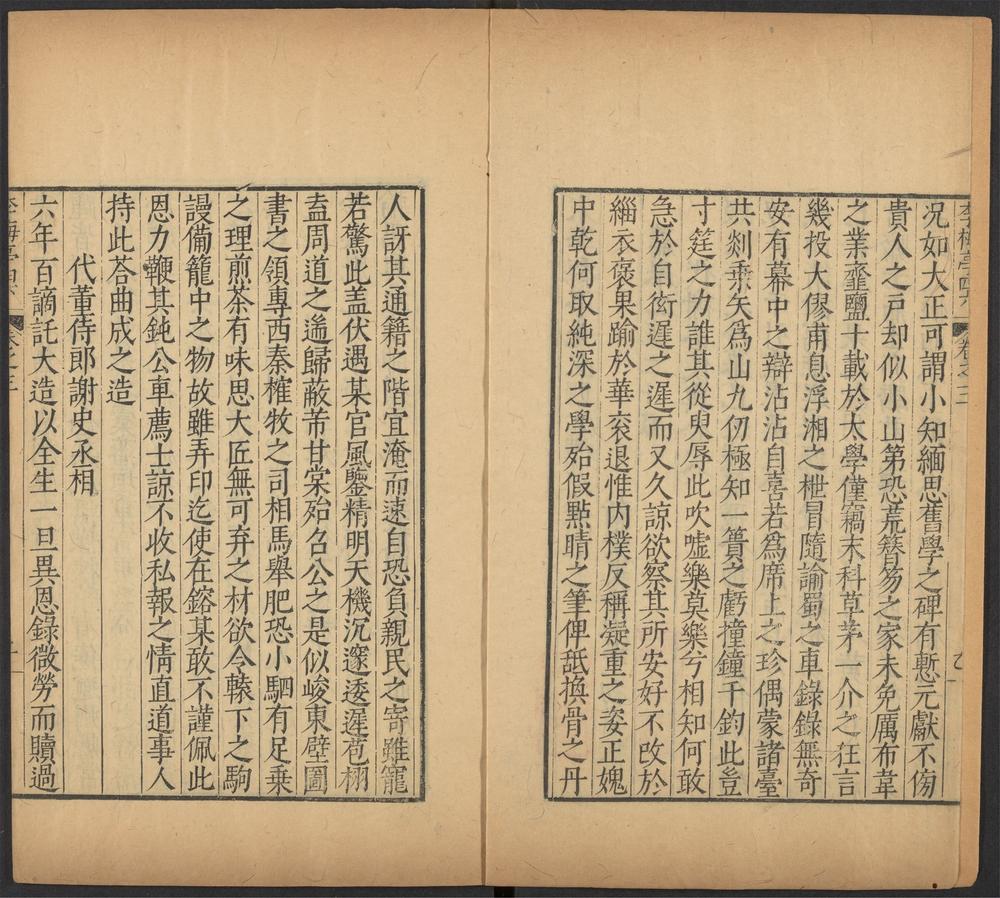 李梅亭四六 卷之三
况如大正可謂小知緬思舊學之碑有慙元獻不傍
貴人之戶却似小山第恐荒簪笏之家未免厲布韋
之業虀鹽十載於太學僅竊末科草茅一介之狂言
幾投大僇甫息浮湘之枻冒隨諭蜀之車錄錄無奇
安有幕中之辯沾沾自喜若爲席上之珍偶蒙諸臺
共剡乘矢爲山九仞極知一簣之虧撞鐘千鈞此豈
寸筳之力誰其從臾辱此吹嘘樂莫樂兮相知何敢
急於自衒遲之遲而又久諒欲察其所安好不改於
緇衣褒果踰於華衮退惟内樸反稱凝重之姿正媿
中乾何取純深之學殆假點睛之筆俾舐換骨之丹
人訝其通籍之階宜淹而速自恐負親民之寄雖寵
若驚此盖伏遇某官風鑒精明天機沉邃逶遲苞栩
盍周道之遙歸蔽芾甘棠殆召公之是似峻東壁圖
書之領專西秦榷牧之司相馬舉肥恐小駟有足乗
之理煎茶有味思大匠無可弃之材欲令轅下之駒
謾備籠中之物故雖弄印迄使在鎔某敢不謹佩此
恩力鞭其鈍公車薦士諒不收私報之情直道事人
持此荅曲成之造
代董侍郎謝史丞相
六年百謫託大造以全生一旦異恩錄微勞而贖過
李梅亭四六 卷之三